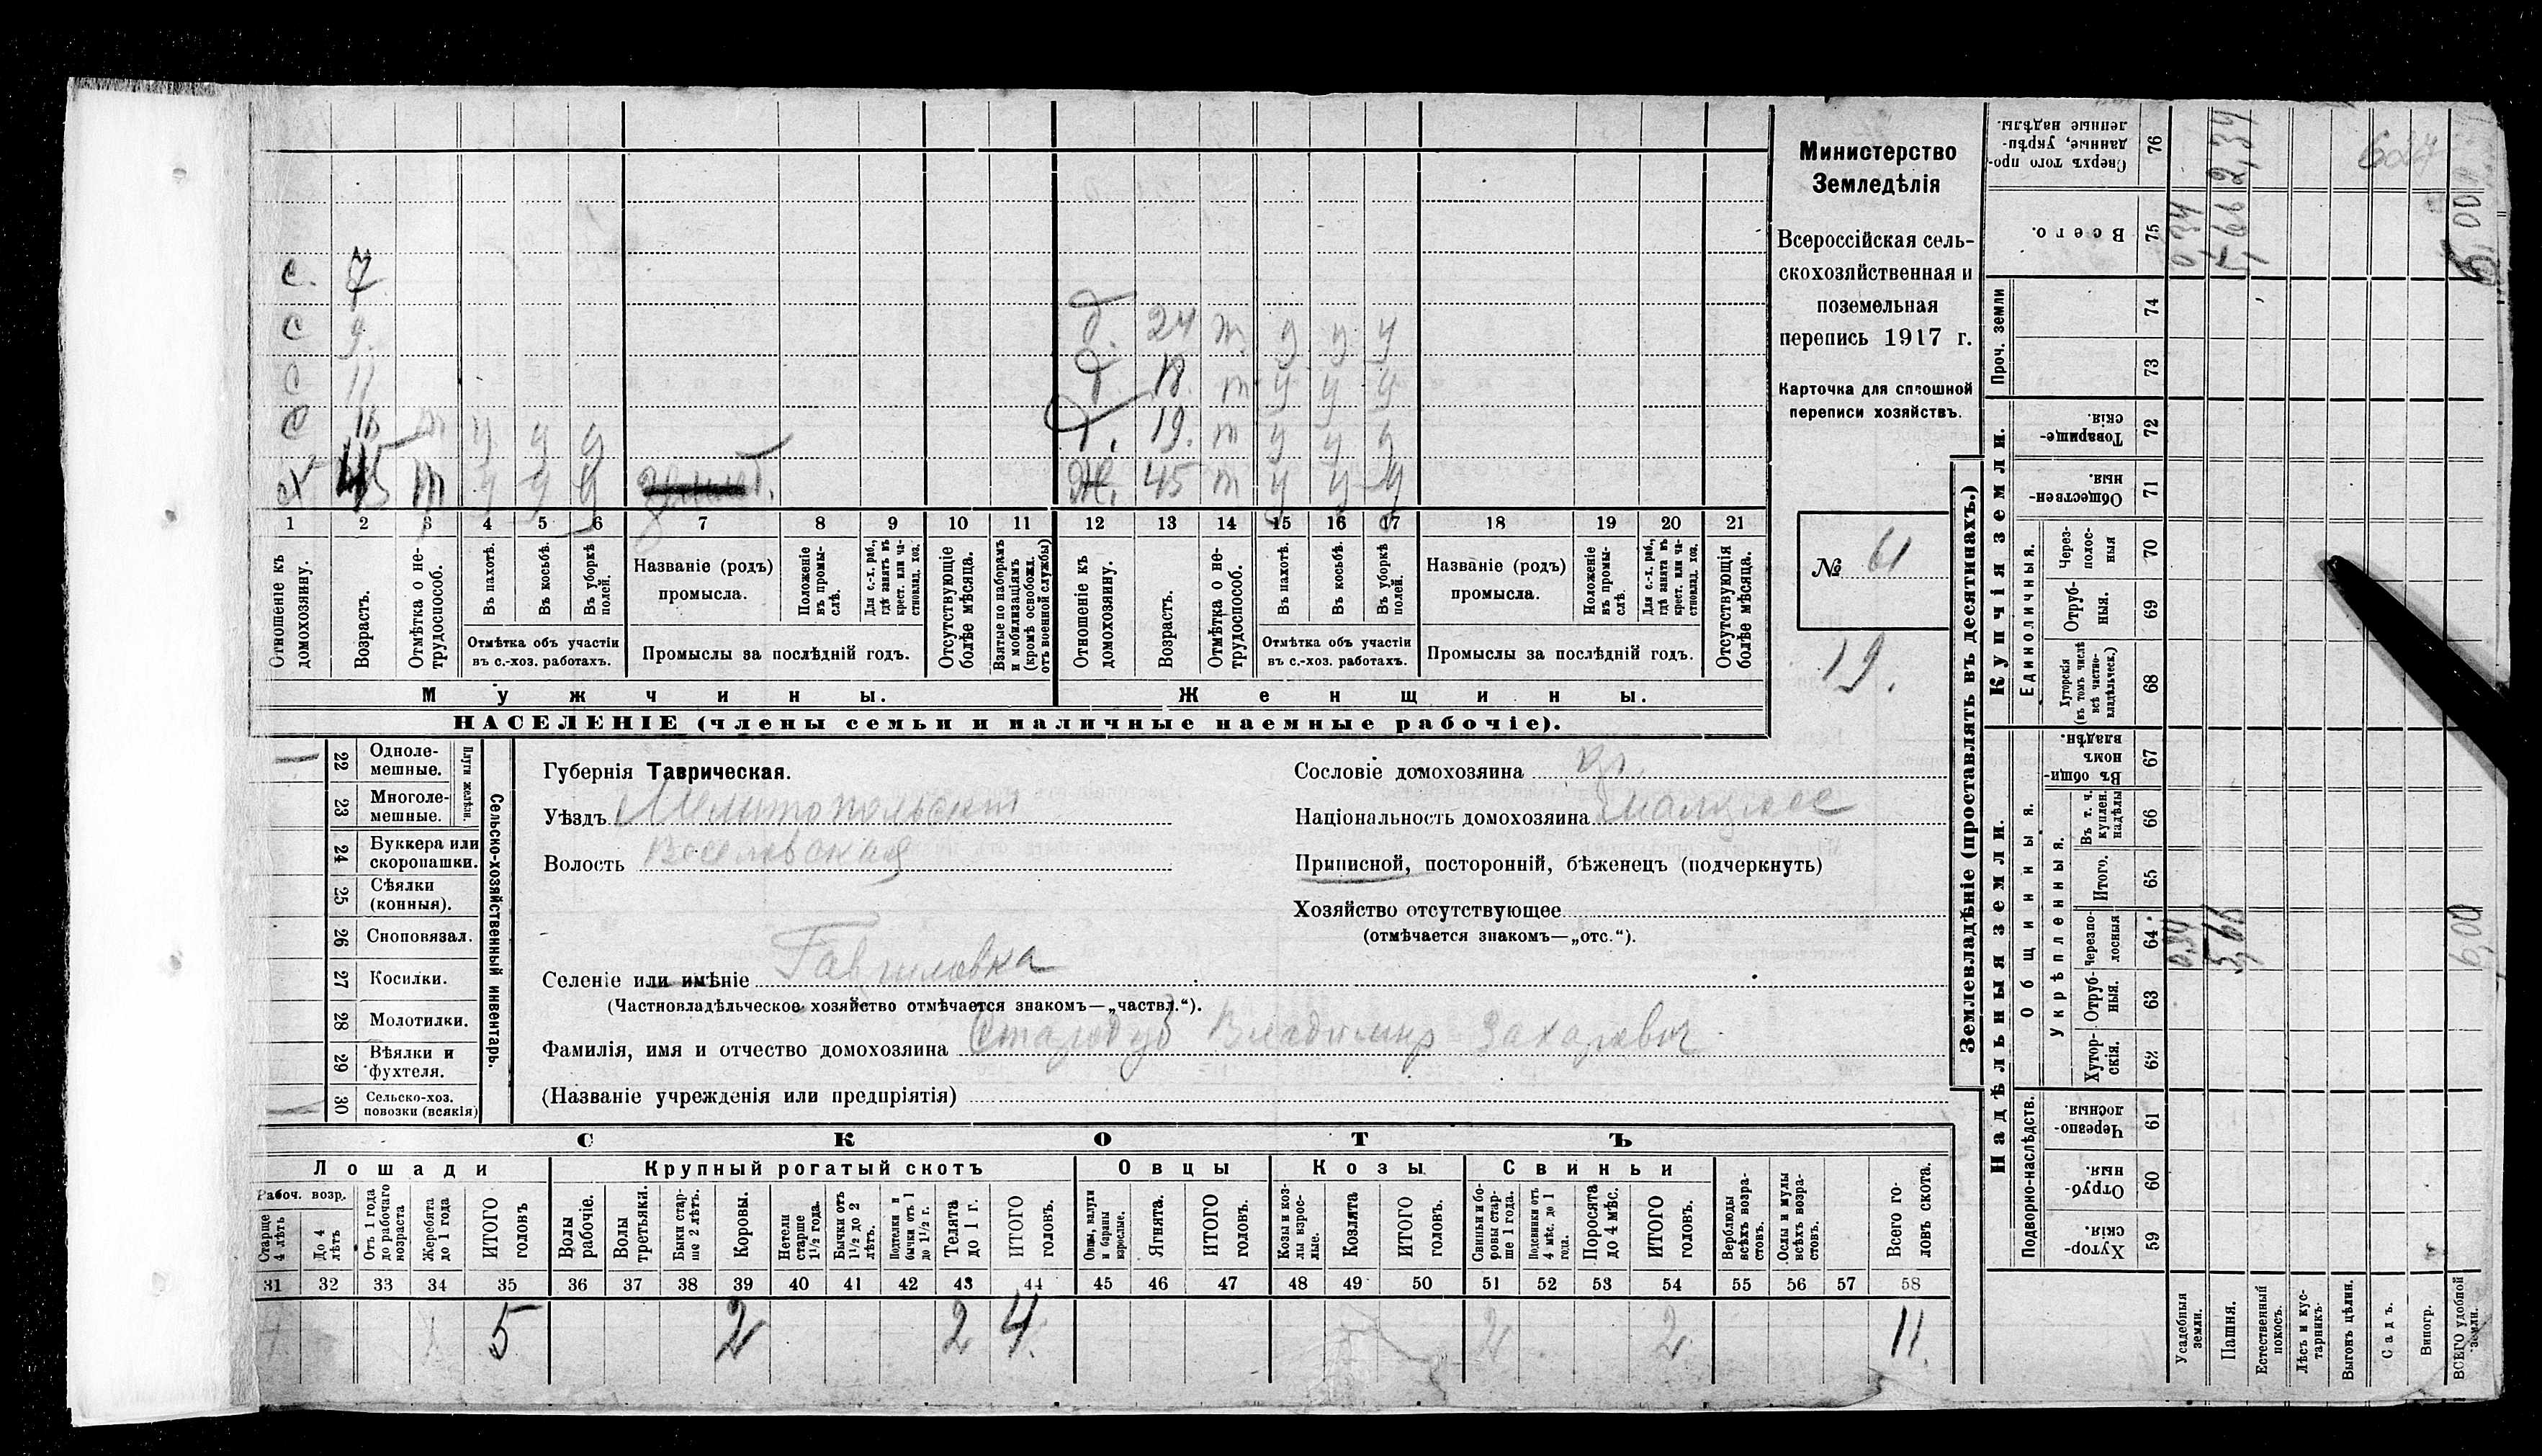 Министерство
Земледѣлія
Всероссійская сель-
скохозяйственная и
поземельная
перепись 1917 г.
Карточка для сплошной
переписи хозяйствъ.
№ 61
19.
с. 7
с 9.
с 11
с 16 т у у у
х 45 т у у у
д. 24 т. у у у
д. 18. т у у у
д. 19. т у у у
Ж. 45 т у у у
1 2 3 4 5 6 7 8 9 10 11 12 13 14 15 16 17 18 19 20 21
Отношеніе къ домохозяину.
Возрастъ.
Отмѣтка о не-трудоспособ.
Въ пахотѣ.
Въ косьбѣ.
Въ уборкѣ полей.
Отмѣтка объ участіи въ с.-хоз. работахъ.
Названіе (родъ) промысла.
Положеніе въ промы-слѣ.
Для с.-х. раб., гдѣ занятъ въ крест. или ча-стновлад. хоз.
Промыслы за послѣдній годъ.
Отсутствующіе болѣе мѣсяца.
Взятые по наборамъ и мобилизаціямъ (кромѣ освобожд. отъ военной службы)
Отношеніе къ домохозяину.
Возрастъ.
Отмѣтка о не-трудоспособ.
Въ пахотѣ.
Въ косьбѣ.
Въ уборкѣ полей.
Отмѣтка объ участіи въ с.-хоз. работахъ.
Названіе (родъ) промысла.
Положеніе въ промы-слѣ.
Для с.-х. раб., гдѣ занята въ крест. или ча-стновлад. хоз.
Промыслы за послѣдній годъ.
Отсутствующія болѣе мѣсяца.
Мужчины.
Женщины.
НАСЕЛЕНІЕ (члены семьи и наличные наемные рабочіе).
22 Одноле-мешные.
23 Многоле-мешные.
Плуги желѣзн.
24 Буккера или скоропашки.
25 Сѣялки (конныя).
26 Сноповязал.
27 Косилки.
28 Молотилки.
29 Вѣялки и фухтеля.
30 Сельско-хоз. повозки (всякія)
Сельско-хозяйственный инвентарь.
Губернія Таврическая.
Уѣздъ Мелитопольскій
Волость Веселовская
Селеніе или имѣніе Гавриловка
(Частновладѣльческое хозяйство отмѣчается знакомъ—„частвл.“).
Фамилія, имя и отчество домохозяина Стародубъ Владимиръ Захаровичъ
(Названіе учрежденія или предпріятія)
Сословіе домохозяина кр.
Національность домохозяина малоросс
Приписной, посторонній, бѣженецъ (подчеркнуть)
Хозяйство отсутствующее
(отмѣчается знакомъ—„отс.“).
СКОТЪ
Лошади
Крупный рогатый скотъ
Овцы
Козы
Свиньи
Рабоч. возр.
Старше 4 лѣтъ
До 4 лѣтъ
Отъ 1 года до рабочаго возраста
Жеребята до 1 года
ИТОГО головъ
Волы рабочіе.
Волы третьяки.
Быки стар-ше 2 лѣтъ.
Коровы.
Нетели старше 1½ года.
Бычки отъ 1½ до 2 лѣтъ.
Подтелки и бычки отъ 1 до 1½ г.
Телята до 1 г.
ИТОГО головъ.
Овцы, валухи и бараны взрослые.
Ягнята.
ИТОГО головъ.
Козы и коз-лы взрос-лые.
Козлята
ИТОГО головъ.
Свиньи и бо-ровы стар-ше 1 года.
Подсвинки отъ 4 мѣс. до 1 года.
Поросята до 4 мѣс.
ИТОГО головъ.
Верблюды всѣхъ возра-стовъ.
Ослы и мулы всѣхъ возра-стовъ.
Всего го-ловъ скота.
31 32 33 34 35 36 37 38 39 40 41 42 43 44 45 46 47 48 49 50 51 52 53 54 55 56 57 58
5 2 2 4. 2 2. 11.
Землевладѣніе (проставлять въ десятинахъ.)
Надѣльныя земли.
Купчія земли.
Проч. земли
Подворно-наслѣдств.
Общинныя.
Укрѣпленныя.
Единоличныя.
Хутор-скія. 59
Отруб-ныя. 60
Черезпо-лосныя. 61
Хутор-скія. 62
Отруб-ныя. 63
Черезпо-лосныя 64
Итого. 65
Въ т. ч. куплен. надѣлы 66
Въ общин-номъ владѣн. 67
Хуторскія (въ томъ числѣ всѣ частно-владѣльческ.) 68
Отруб-ныя. 69
Через-полос-ныя 70
Обществен-ныя. 71
Товарище-скія. 72
73
74
Всего. 75
Сверхъ того про-данные, укрѣп-ленные надѣлы. 76
Усадебныя земли. 0,34 0,34
Пашня. 5,66 5,66 2,34
Естественный покосъ.
Лѣсъ и кус-тарникъ.
Выгонъ цѣлин.
Садъ.
Виногр.
ВСЕГО удобной земли. 6,00 6,00
627